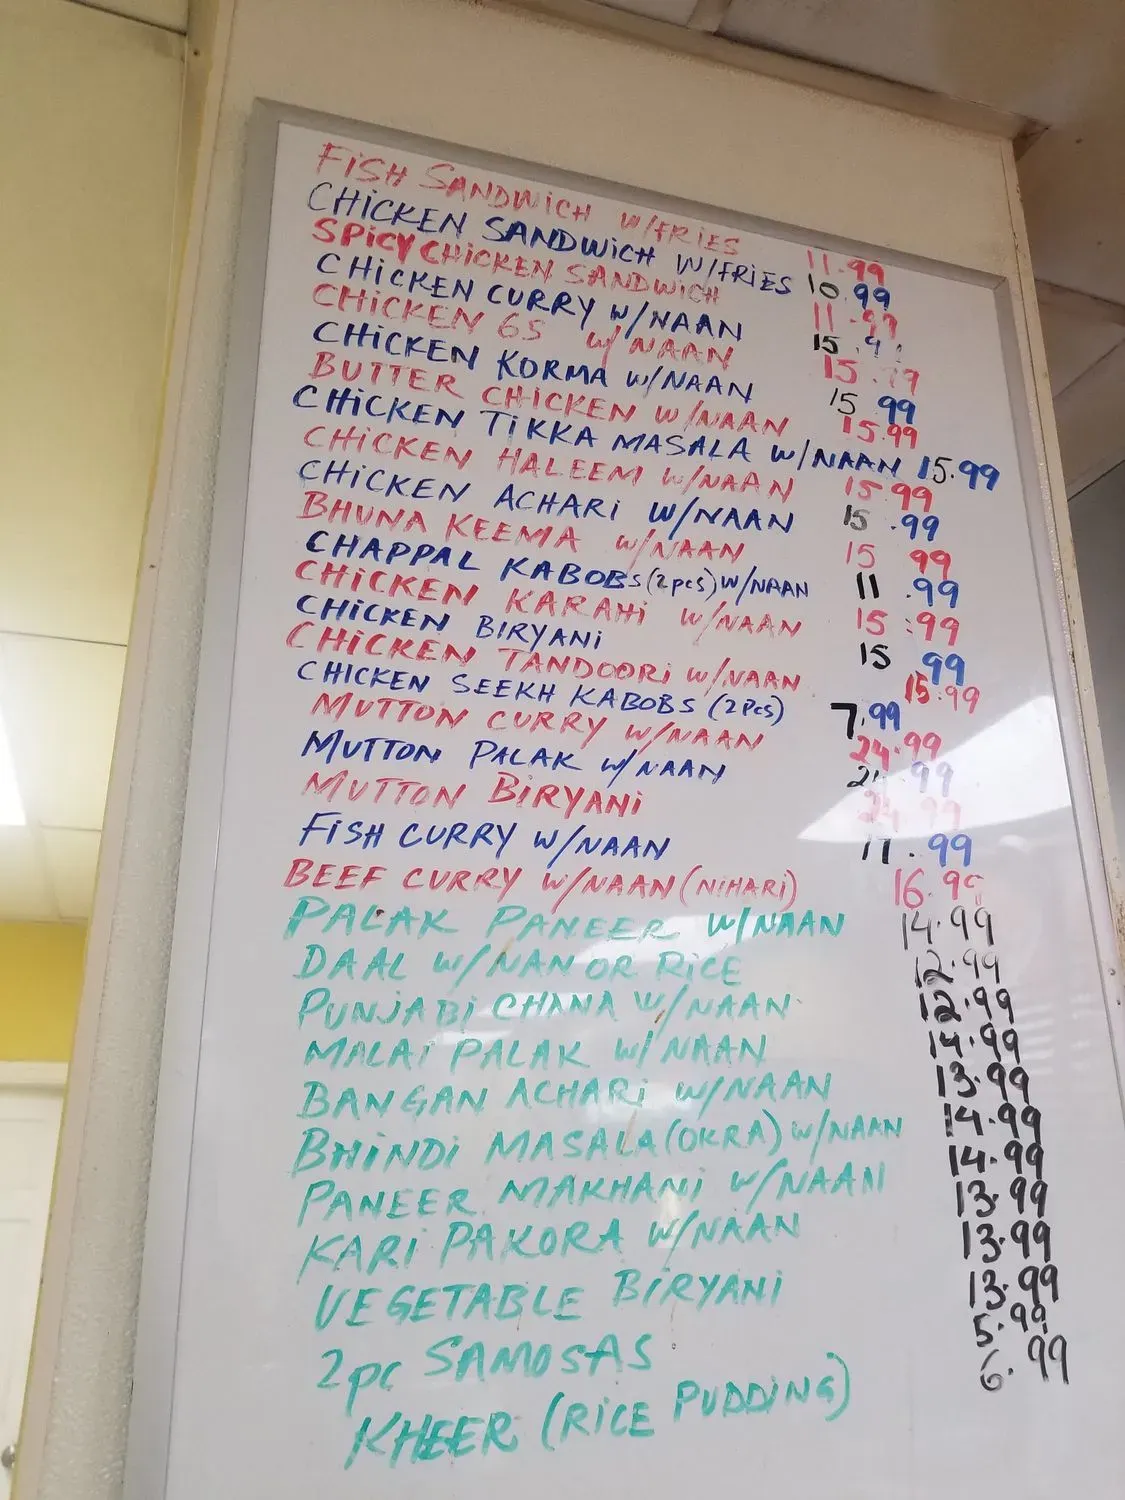 FiSH SANDWiCH W/FRiES 11.99
CHiCKEN SANDWiCH W/FRiES 10.99
SPiCY CHiCKEN SANDWiCH 11.99
CHiCKEN CURRY W/NAAN 15.9
CHiCKEN 65 W/ NAAN 15.99
CHiCKEN KORMA W/NAAN 15.99
BUTTER CHiCKEN W/NAAN 15.99
CHiCKEN TiKKA MASALA W/NAAN 15.99
CHiCKEN HALEEM W/NAAN 15.99
CHiCKEN ACHARi W/NAAN 15.99
BHUNA KEEMA W/NAAN 15 99
CHAPPAL KABOBS (2pcs) W/NAAN 11.99
CHiCKEN KARAHi W/NAAN 15.99
CHiCKEN BiRYANi 15 99
CHiCKEN TANDOORi W/NAAN 15.99
CHICKEN SEEKH KABOBS (2Pcs) 7.99
MUTTON CURRY W/NAAN 24.99
MUTTON PALAK W/NAAN 24.99
MUTTON BiRYANi 24.99
FiSH CURRY W/NAAN 17.99
BEEF CURRY W/NAAN (NiHARi) 16.99
PALAK PANEER W/NAAN 14.99
DAAL W/NAN OR RiCE 12.99
PUNJABi CHANA W/NAAN 12.99
MALAi PALAK W/NAAN 14.99
BANGAN ACHARi W/NAAN 13.99
BHiNDi MASALA (OKRA) W/NAAN 14.99
PANEER MAKHANi W/NAAN 14.99
KARi PAKORA W/NAAN 13.99
VEGETABLE BiRYANi 13.99
13.99
2pc SAMOSAS 5.99
KHEER (RiCE PUDDiNG) 6.99